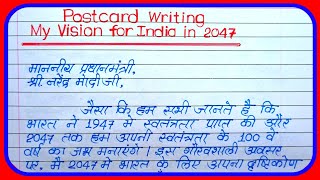 Postcard Writing
My Vision for India in 2047
माननीय प्रधानमंत्री,
श्री नरेंद्र मोदी जी,
जैसा कि हम सभी जानते है कि
भारत ने 1947 में स्वतंत्रता प्राप्त की और
2047 तक हम अपनी स्वतंत्रता के 100 वे
वर्ष का जश्न मनाएंगे। इस गौरवशाली अवसर
पर, मैं 2047 में भारत के लिए अपना दृष्टिकोण